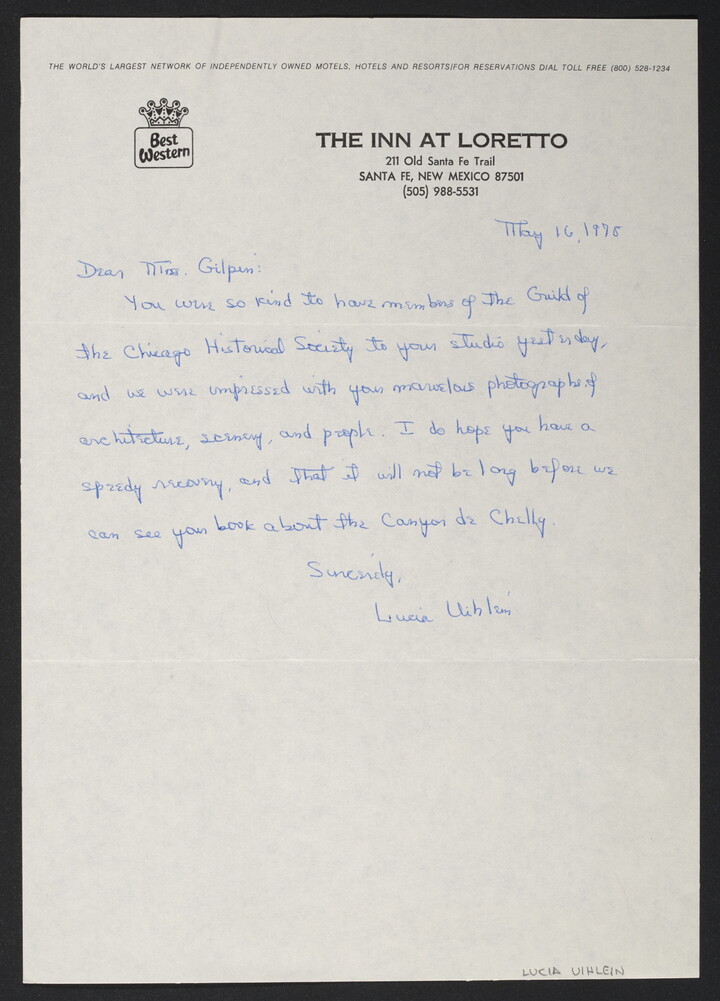 THE WORLD'S LARGEST NETWORK OF INDEPENDENTLY OWNED MOTELS, HOTELS AND RESORTS/FOR RESERVATIONS DIAL TOLL FREE (800) 528-1234
Best
Western
THE INN AT LORETTO
211 Old Santa Fe Trail
SANTA FE, NEW MEXICO 87501
(505) 988-5531
May 16, 1978
Dear Mrs. Gilpin:
You were so kind to have members of the Guild of
the Chicago Historical Society to your studio yesterday,
and we were impressed with your marvelous photographs of
architecture, scenery, and people. I do hope you have a
speedy recovery, and that it will not be long before we
can see your book about the Canyon de Chelly.
Sincerely,
Lucia Uihlein
LUCIA UIHLEIN